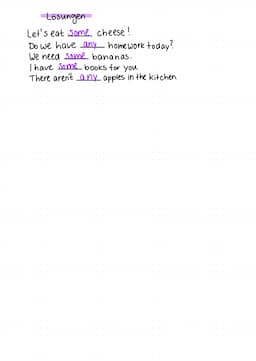 Lösungen
Let's eat some cheese!
Do we have any homework today?
We need some bananas.
I have some books for you.
There aren't any apples in the kitchen